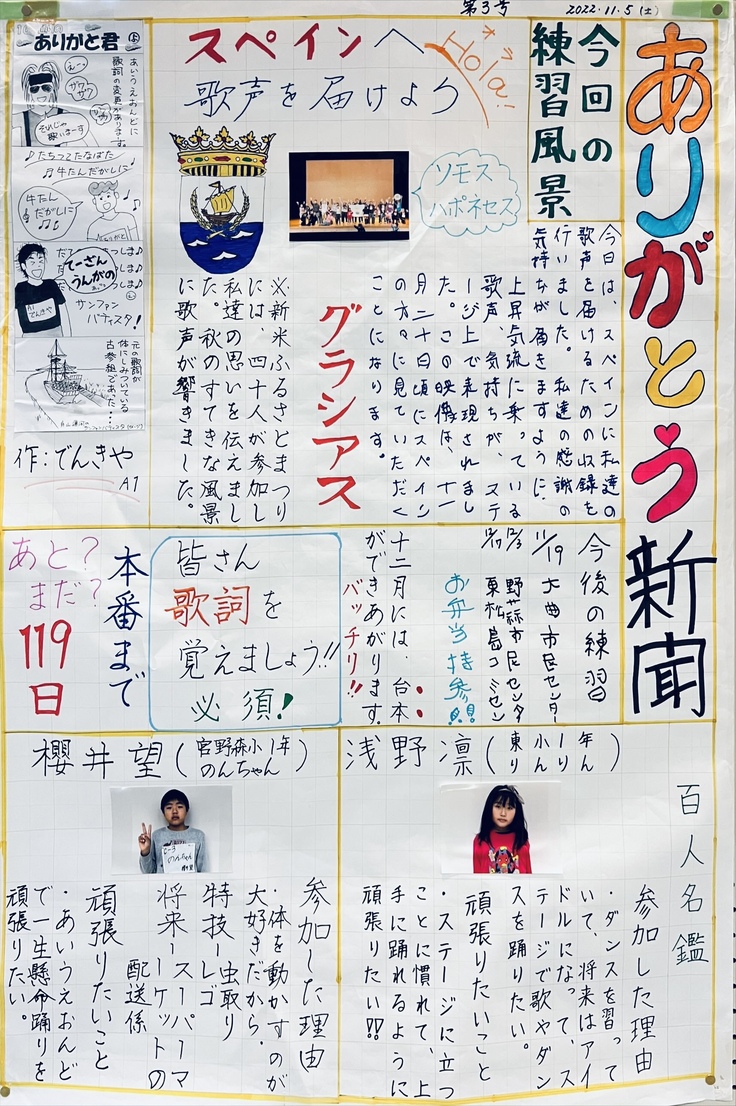 第3号
2022.11.5(土)
ありがとう新聞
今回の
練習風景
スペインへ
Hola!
オラ
歌声を届けよう
ソモス
ハポネセス
今日は、スペインに私達の
歌声を届けるための収録を
行いました。私達の感謝の
気持ちが届きますように。
上昇気流に乗っている
歌声、気持ちが、ステ
ージ上で表現されまし
た。この映像は、十一
月二十日頃にスペイン
の方々に見ていただく
ことになります。
グラシアス
※新米ふるさとまつり
には、四十人が参加し
私達の思いを伝えまし
た。秋のすてきな風景
に歌声が響きました。
ありがと君
あいうえおんどに
歌詞の変声があります。
えーっ
ザワ
ザワ
それじゃ
歌いまーす
♪たちつてたなばた
♪牛タンだがしに♪
牛たん
だがしに
♫
てーさん
うんがの
サンファン
バティスタ!
元の歌詞が
体にしみついている
古参組であった…
作:でんきや
A1
今後の練習
11/19 大曲市民センター
12/3 野蒜市民センター
12/17 東松島コミセン
お弁当持参!!
十二月には、台本
ができあがります。
バッチリ!!
皆さん
歌詞を
覚えましょう!!
必須!
本番まで
あと?
まだ?
119
日
百人名鑑
浅野凛(東小1年 りんりん)
参加した理由
・ダンスを習って
いて、将来はアイ
ドルになって、ス
テージで歌やダン
スを踊りたい。
頑張りたいこと
・ステージに立つ
ことに慣れて、上
手に踊れるように
頑張りたい!!
櫻井望(宮野森小1年 のんちゃん)
のんちゃん
参加した理由
・体を動かすのが
大好きだから。
特技ーレゴ
虫取り
将来ースーパーマ
ーケットの
配送係
頑張りたいこと
・あいうえおんど
で一生懸命踊りを
頑張りたい。